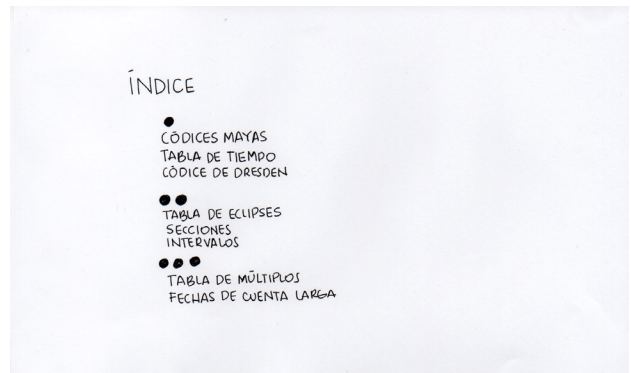 ÍNDICE
CÓDICES MAYAS
TABLA DE TIEMPO
CÓDICE DE DRESDEN
TABLA DE ECLIPSES
SECCIONES
INTERVALOS
TABLA DE MÚLTIPLOS
FECHAS DE CUENTA LARGA